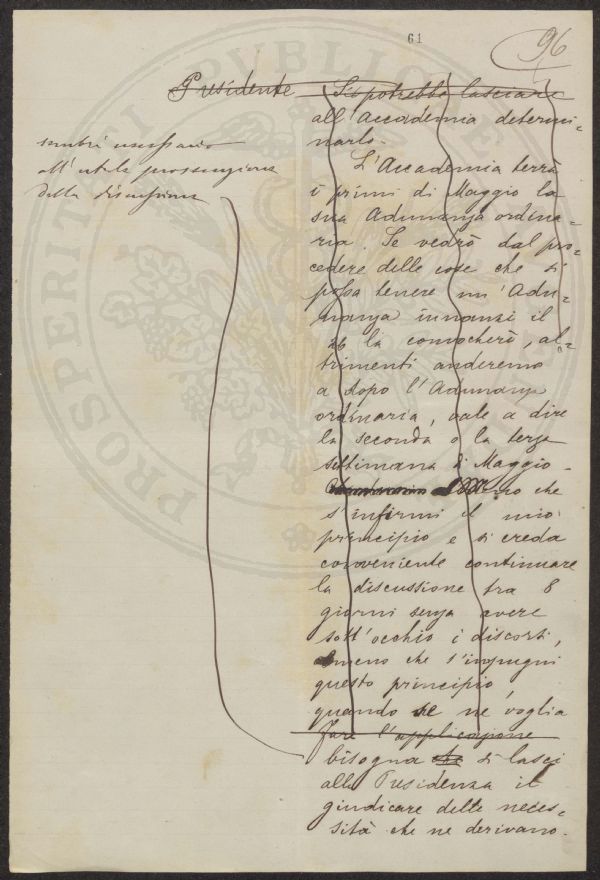 61
96
Presidente Si potrebbe lasciare
all'Accademia determi=
narlo.
L'Accademia terrà
i primi di Maggio la
sua Adunanza ordina=
ria. Se vedrò dal pro=
cedere delle cose che si
possa tenere un'Adu=
nanza innanzi il
26 la convocherò, al=
trimenti anderemo
a dopo l'Adunanza
ordinaria, vale a dire
la seconda o la terza
settimana di Maggio.
meno che
s'infirmi il mio
principio e si creda
conveniente continuare
la discussione fra 8
giorni senza avere
sott'occhio i discorsi,
Ameno che s'impugni
questo principio,
quando se ne voglia
fare l'applicazione
bisogna che si lasci
alla Presidenza il
giudicare delle neces=
sità che ne derivano.
sembri necessario
all'utile prosecuzione
della discussione
PROSPERITATI PUBLICAE